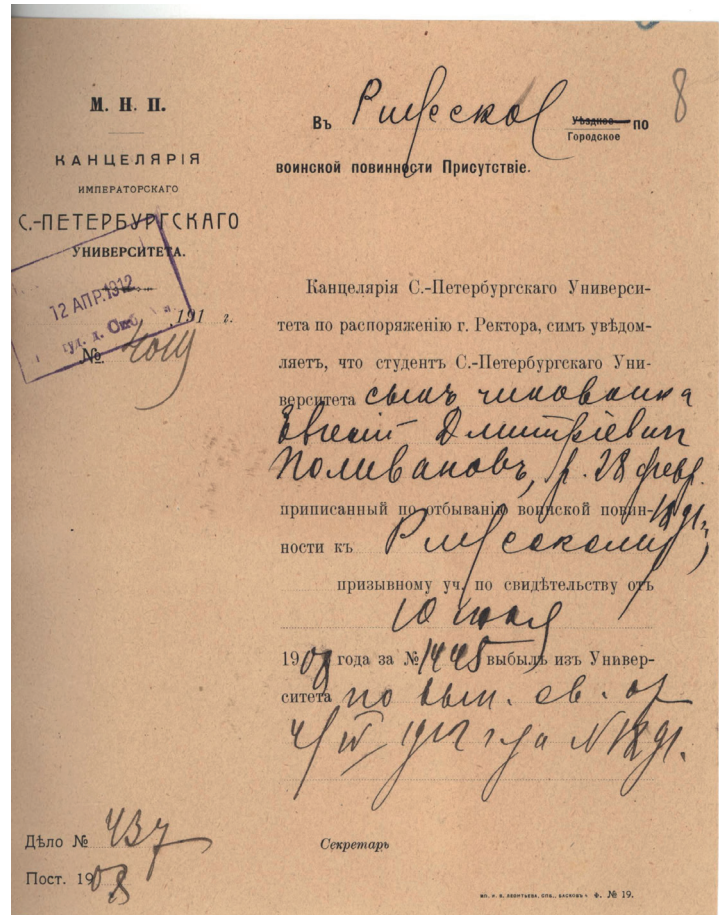 8
М. Н. П.
КАНЦЕЛЯРІЯ
ИМПЕРАТОРСКАГО
С.-ПЕТЕРБУРГСКАГО
УНИВЕРСИТЕТА.
12 АПР. 1912
191 г.
№ 4019
Въ Рижское Уѣздное по
Городское
воинской повинности Присутствіе.
Канцелярія С.-Петербургскаго Универси-
тета по распоряженію г. Ректора, симъ увѣдом-
ляетъ, что студентъ С.-Петербургскаго Уни-
верситета сынъ чиновника
Евгеній Дмитріевич
Поливановъ, р. 28 февр.
1891 г.,
приписанный по отбыванію воинской повин-
ности къ Рижскому
призывному уч. по свидѣтельству отъ
10 іюля
1908 года за № 1445 выбылъ изъ Универ-
ситета по вып. св. от
4/IV 1912 года N 1891.
Дѣло № 437
Пост. 1908
Секретарь
Ф. № 19.